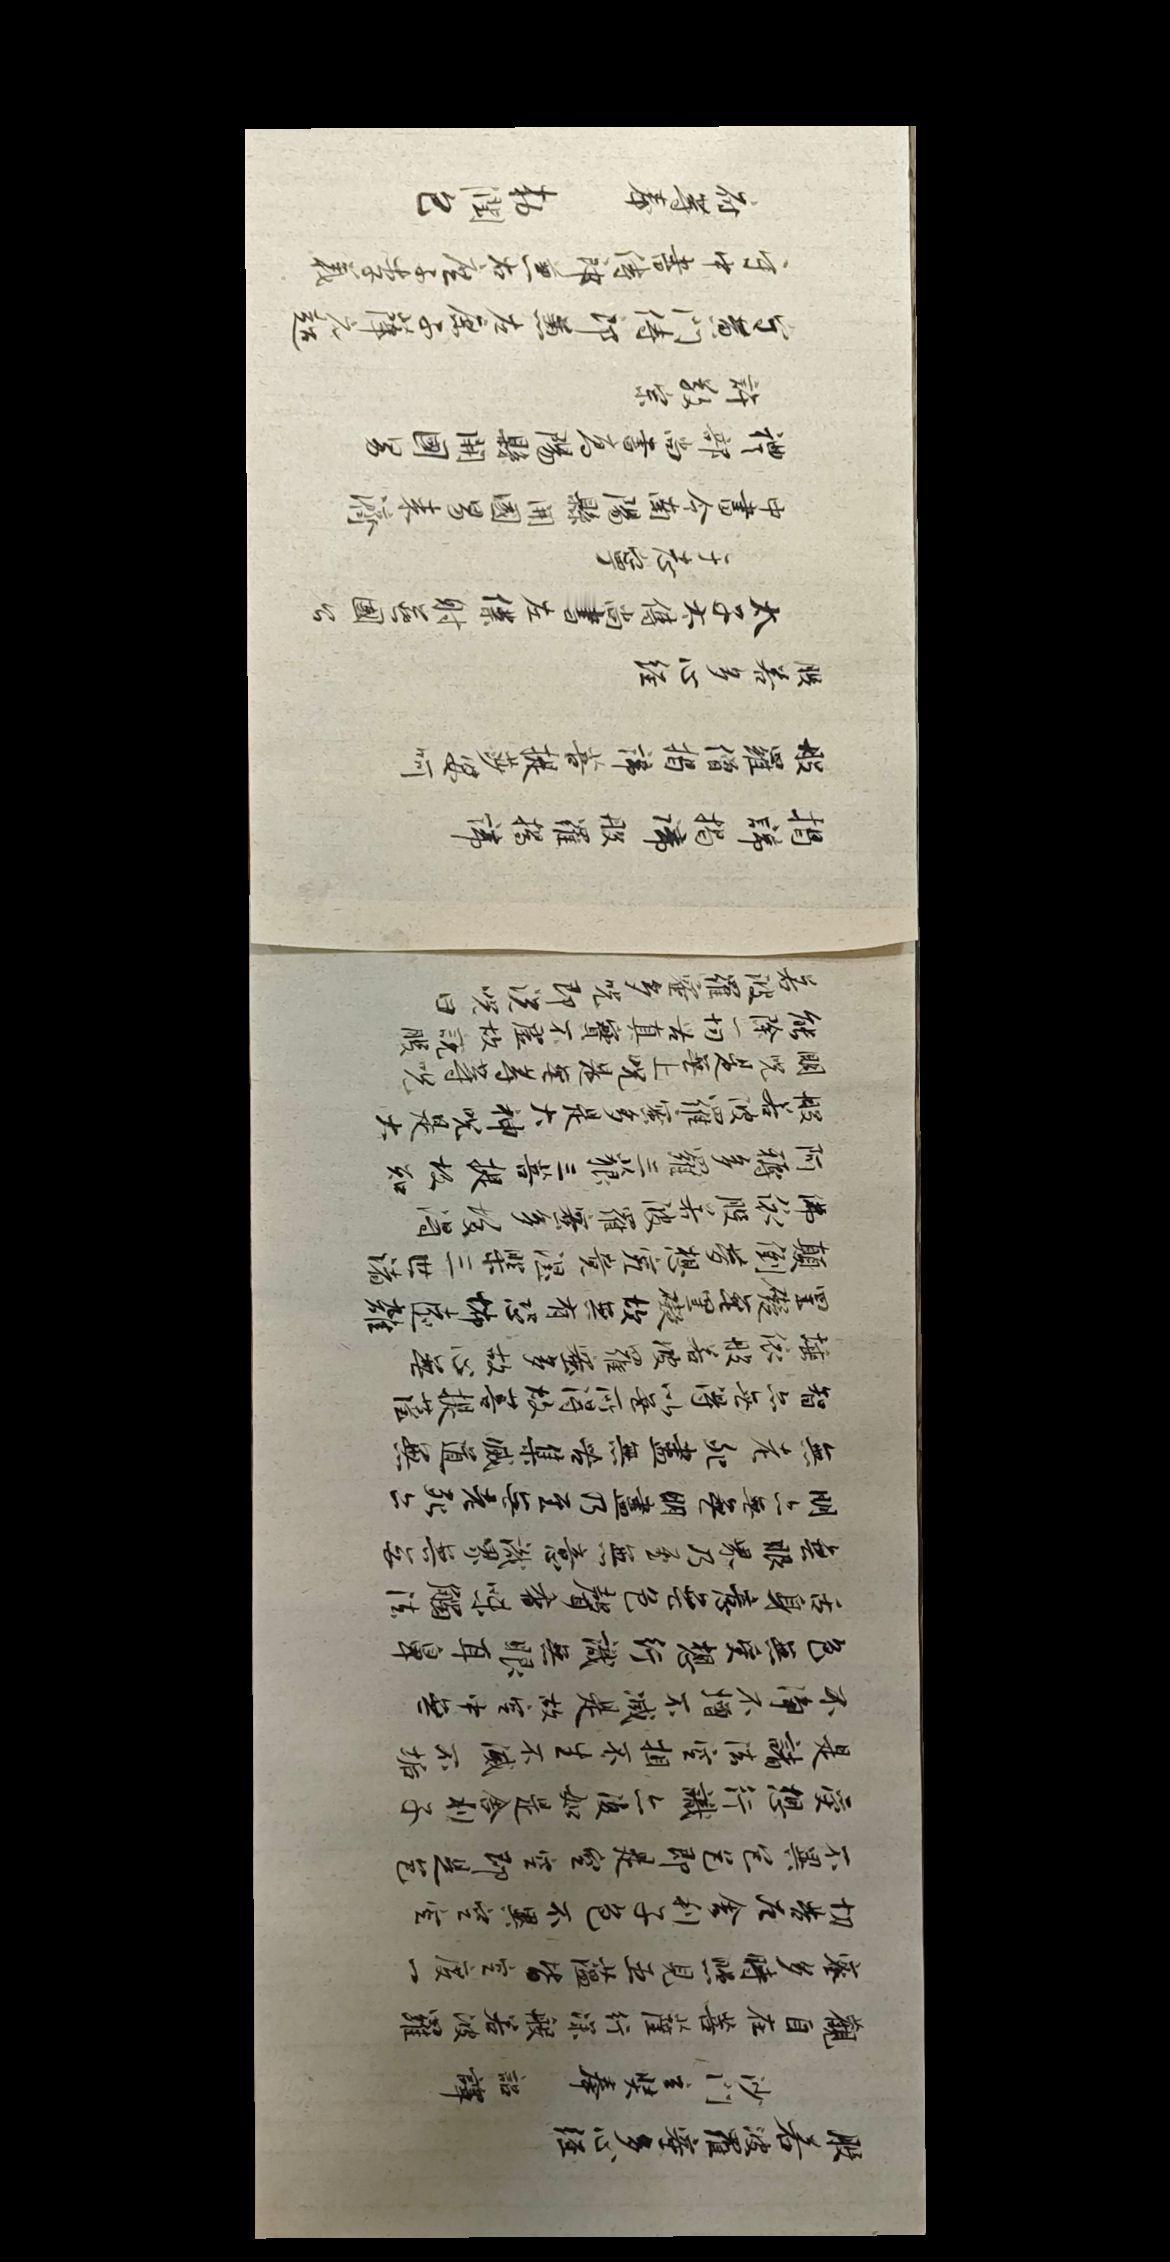 般若波羅蜜多心經
沙門玄奘奉 詔譯
觀自在菩薩行深般若波羅
蜜多時照見五蘊皆空度一
切苦厄舍利子色不異空空
不異色色即是空空即是色
受想行識亦復如是舍利子
是諸法空相不生不滅不垢
不淨不增不減是故空中無
色無受想行識無眼耳鼻
舌身意無色聲香味觸法
無眼界乃至無意識界無無
明亦無無明盡乃至無老死亦
無老死盡無苦集滅道無
智亦無得以無所得故菩提薩
埵依般若波羅蜜多故心無
罣礙無罣礙故無有恐怖遠離
顛倒夢想究竟涅槃三世諸
佛依般若波羅蜜多故得
阿耨多羅三藐三菩提故知
般若波羅蜜多是大神咒是大
明咒是無上咒是無等等咒
能除一切苦真實不虛故說般
若波羅蜜多咒即說咒曰
揭諦揭諦般羅揭諦
般羅僧揭諦菩提莎婆呵
般若多心經
太子太傅尚書左僕射燕國公
于志寧
中書令南陽縣開國男來濟
禮部尚書高陽縣開國男
許敬宗
守黃門侍郎兼左庶子薛元超
守中書侍郎兼右庶子李義
府等奉 敕潤色